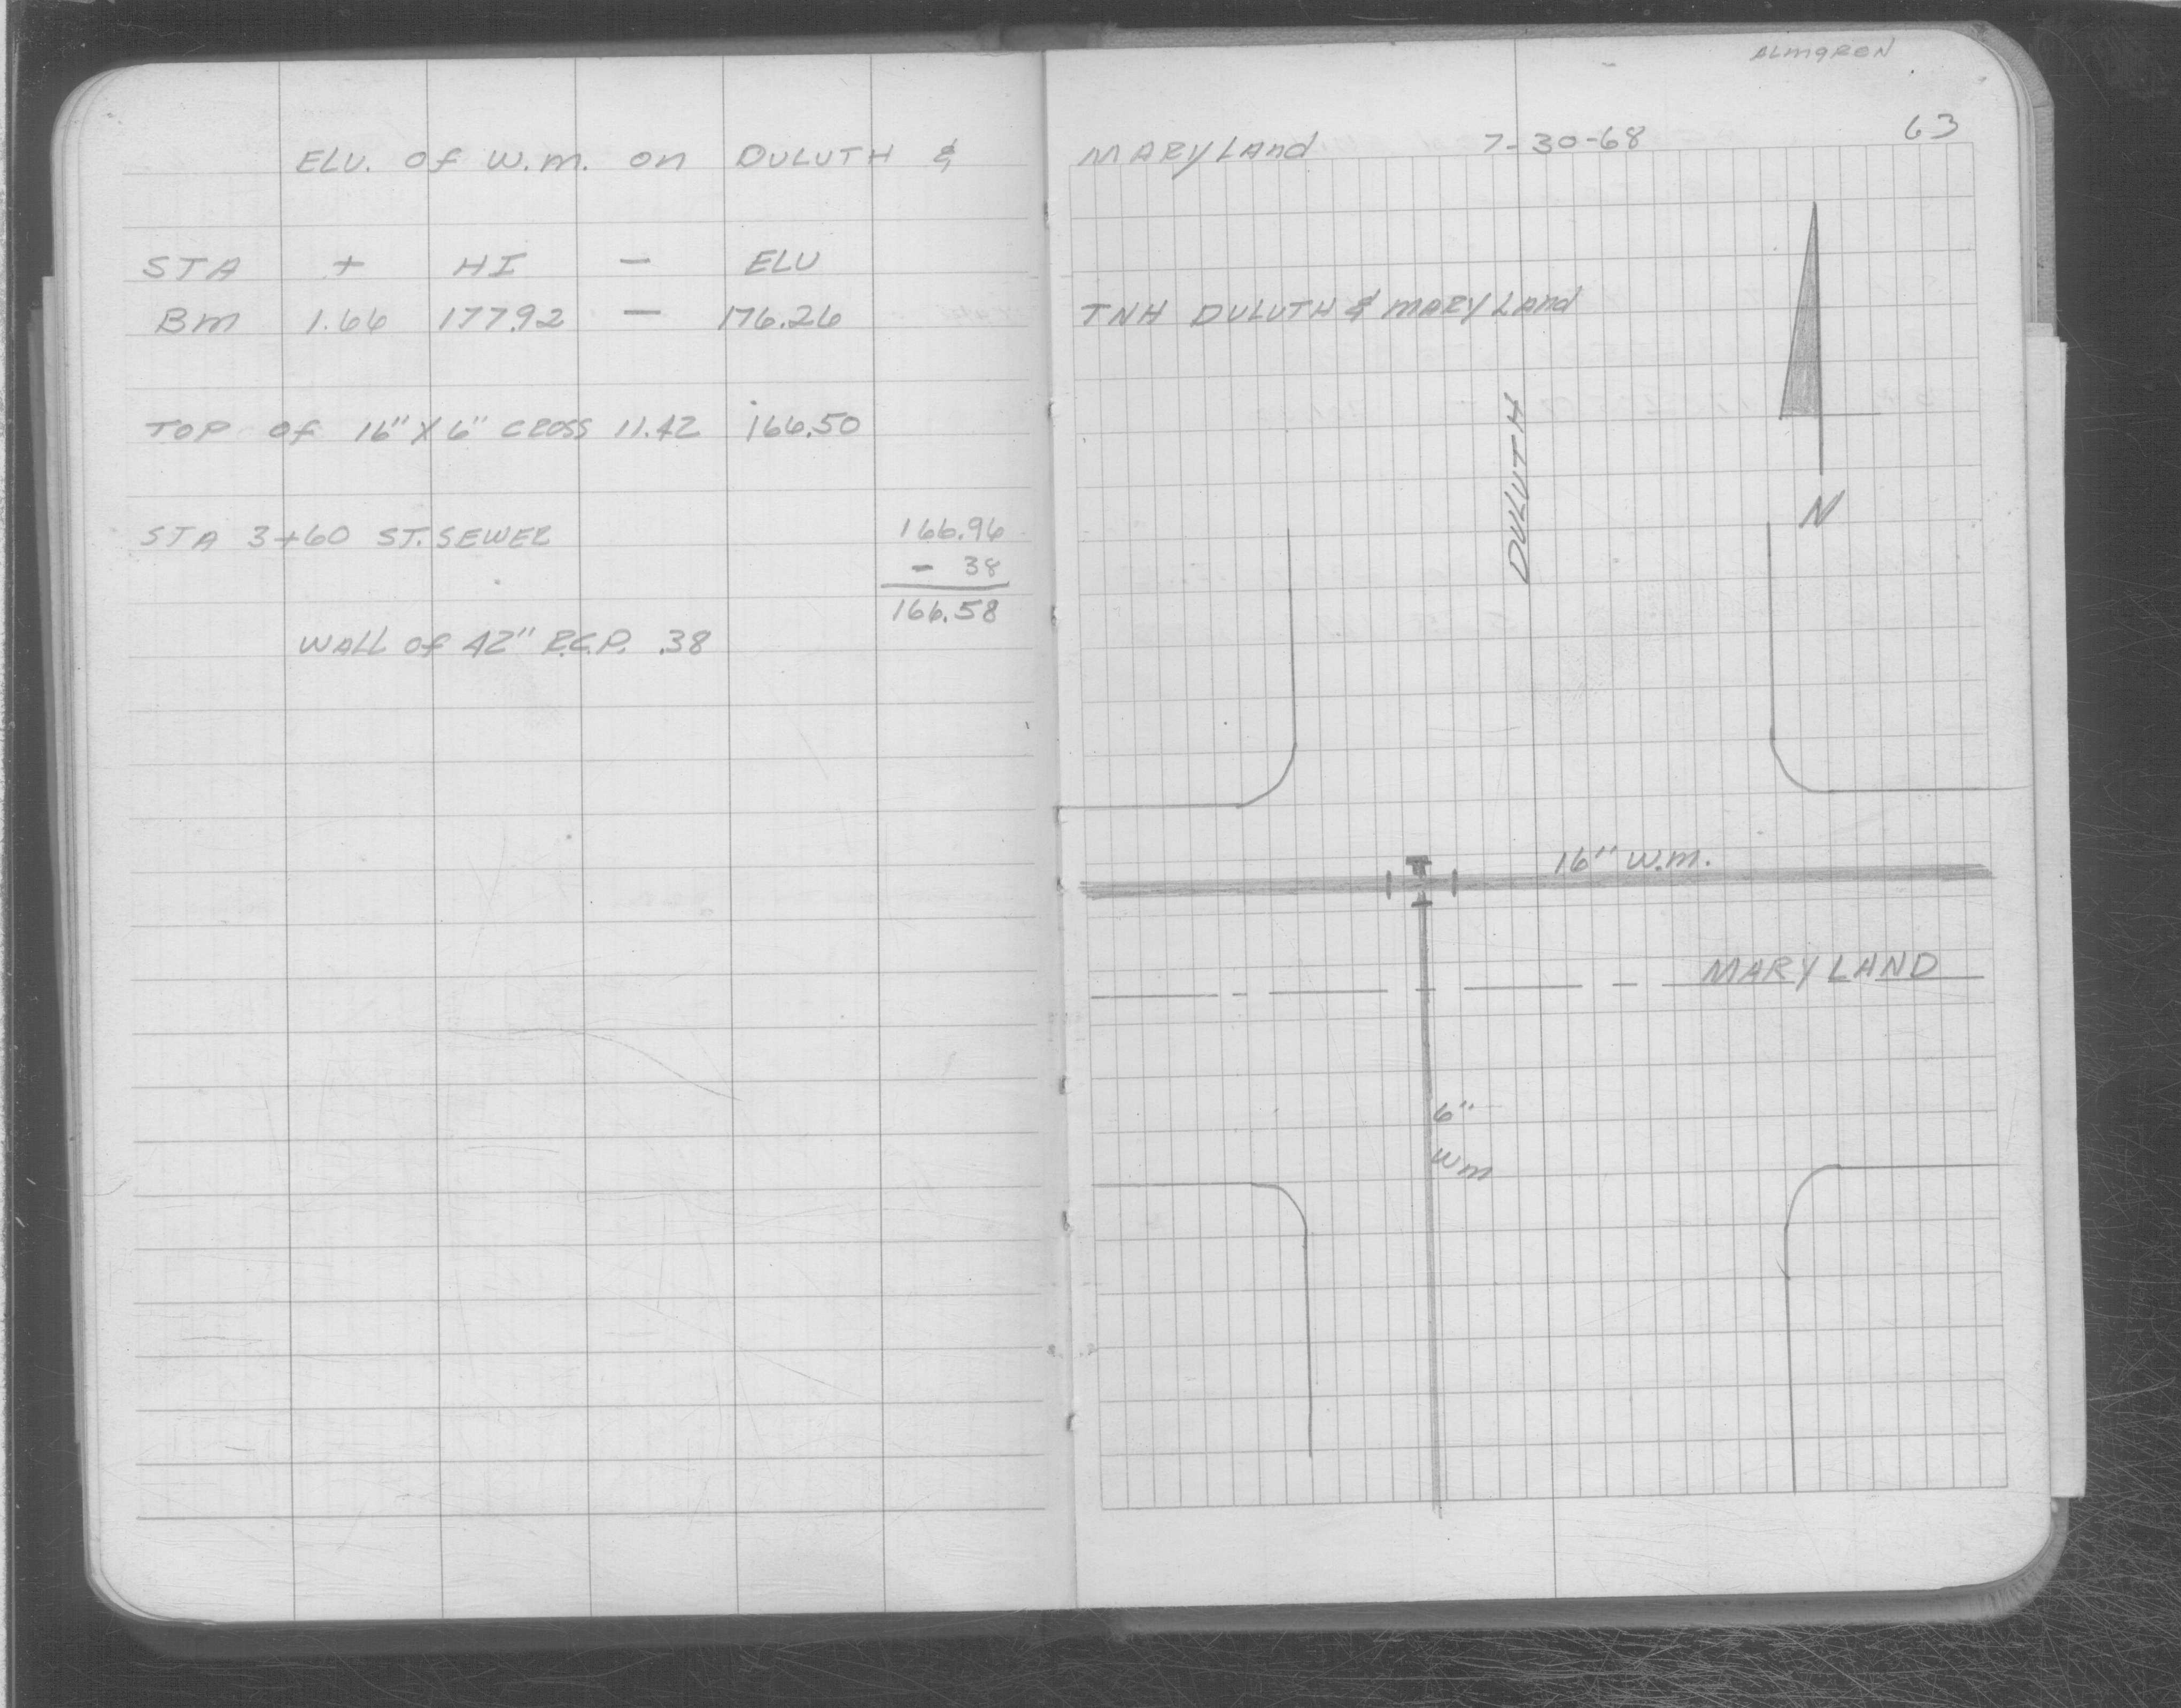 ELV. of W.M. on DULUTH &
STA + HI — ELV
BM 1.66 177.92 — 176.26
TOP of 16" X 6" CROSS 11.42 166.50
STA 3+60 ST. SEWER 166.96
- 38
166.58
WALL of 42" R.C.P. .38
ALMGREN
63
MARYLAnd 7-30-68
TNH DULUTH & MARYLAnd
DULUTH
N
16" W.M.
MARYLAND
6"
WM